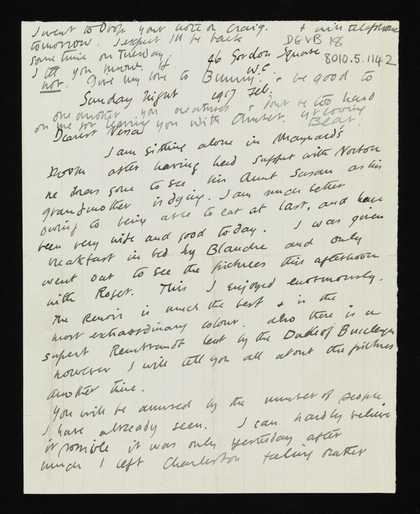 I want to Drop your note on Craig. + will telephone
tomorrow. I expect I'll be back DGVB 18
some time on Tuesday. 8010.5.1142
I'll you know if 46 Gordon Square
not. Give my love to Bunny. W.C. + be good to
Sunday Night 1917 Feb:
one another you creatures + don't be too hard
on me for leaving you with Amber. Yr loving
Dearest Nessa Bear.
I am sitting alone in Maynard's
Room after having had supper with Norton
he has gone to see his Aunt Susan as his
grandmother is dying. I am much better
owing to being able to eat at last, and have
been very wise and good today. I was given
breakfast in bed by Blanche and only
went out to see the pictures this afternoon
with Roger. This I enjoyed enormously.
The Renoir is much the best + is the
most extraordinary colour. also there is a
superb Rembrandt lent by the Duke of Buccleugh
however I will tell you all about the pictures
another time.
You will be amused by the number of people
I have already seen. I can hardly believe
it possible it was only yesterday after
which I left Charleston feeling rather